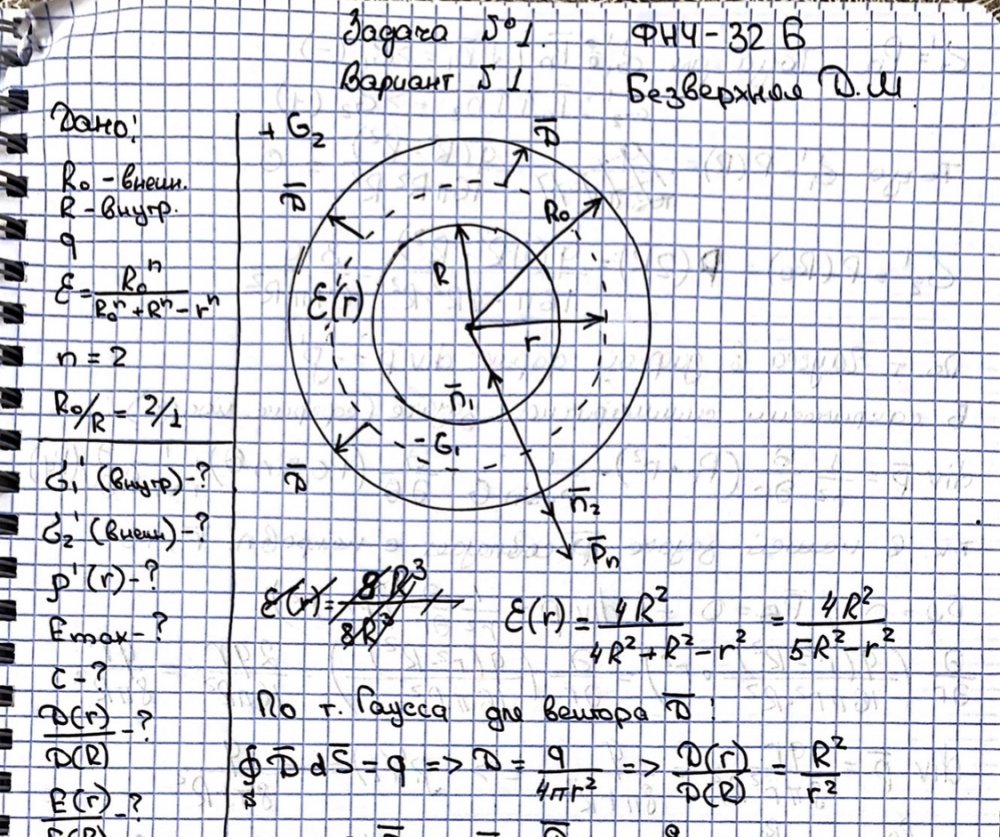 Задача №1.
ФН4-32Б
Вариант №1.
Безверхняя Д.М.
Дано:
R₀ - внешн.
R - внутр.
q
ε = R₀ⁿ / (R₀ⁿ + Rⁿ - rⁿ)
n = 2
R₀/R = 2/1
σ₁' (внутр) - ?
σ₂' (внешн) - ?
ρ'(r) - ?
Emax - ?
C - ?
D(r)/D(R) - ?
E(r)/E(R) - ?
+ σ₂
D̄
D̄
R₀
R
ε(r)
r
n̄₁
- σ₁
D̄
n̄₂
D̄n
ε(r) = 4R² / (4R² + R² - r²) = 4R² / (5R² - r²)
По т. Гаусса для вектора D̄:
∮ D̄ dS̄ = q => D = q / 4πr² => D(r)/D(R) = R²/r²